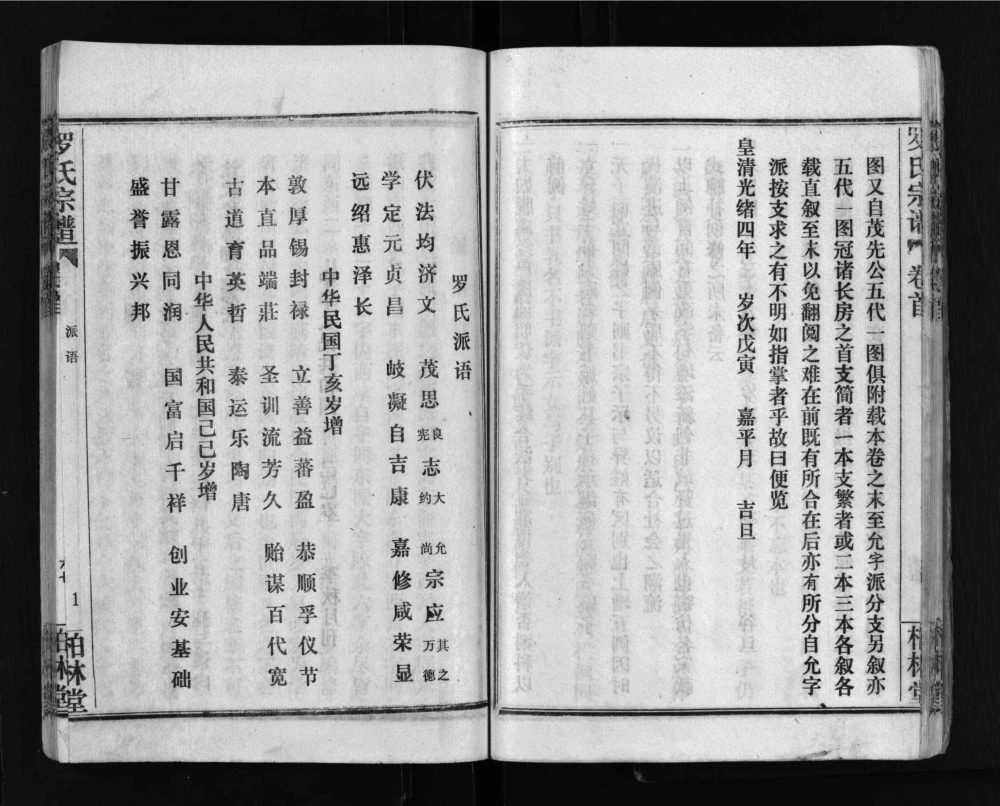 罗氏宗谱 卷首 柏林堂
图又自茂先公五代一图俱附载本卷之末至允字派分支另叙亦
五代一图冠诸长房之首支简者一本支繁者或二本三本各叙各
载直叙至末以免翻阅之难在前既有所合在后亦有所分自允字
派按支求之有不明如指掌者乎故曰便览
皇清光绪四年 岁次戊寅 嘉平月 吉旦
罗氏派语
伏法均济文 茂思 良宪 志 大约 允尚 宗应 其万 之德
学定元贞昌 岐凝自吉康 嘉修咸荣显
远绍惠泽长
中华民国丁亥岁增
敦厚锡封禄 立善益蕃盈 恭顺孚仪节
本直品端莊 圣训流芳久 贻谋百代宽
古道育英哲 泰运乐陶唐
中华人民共和国己巳岁增
甘露恩同润 国富启千祥 创业安基础
盛誉振兴邦
罗氏宗谱 卷首 派语 1 柏林堂